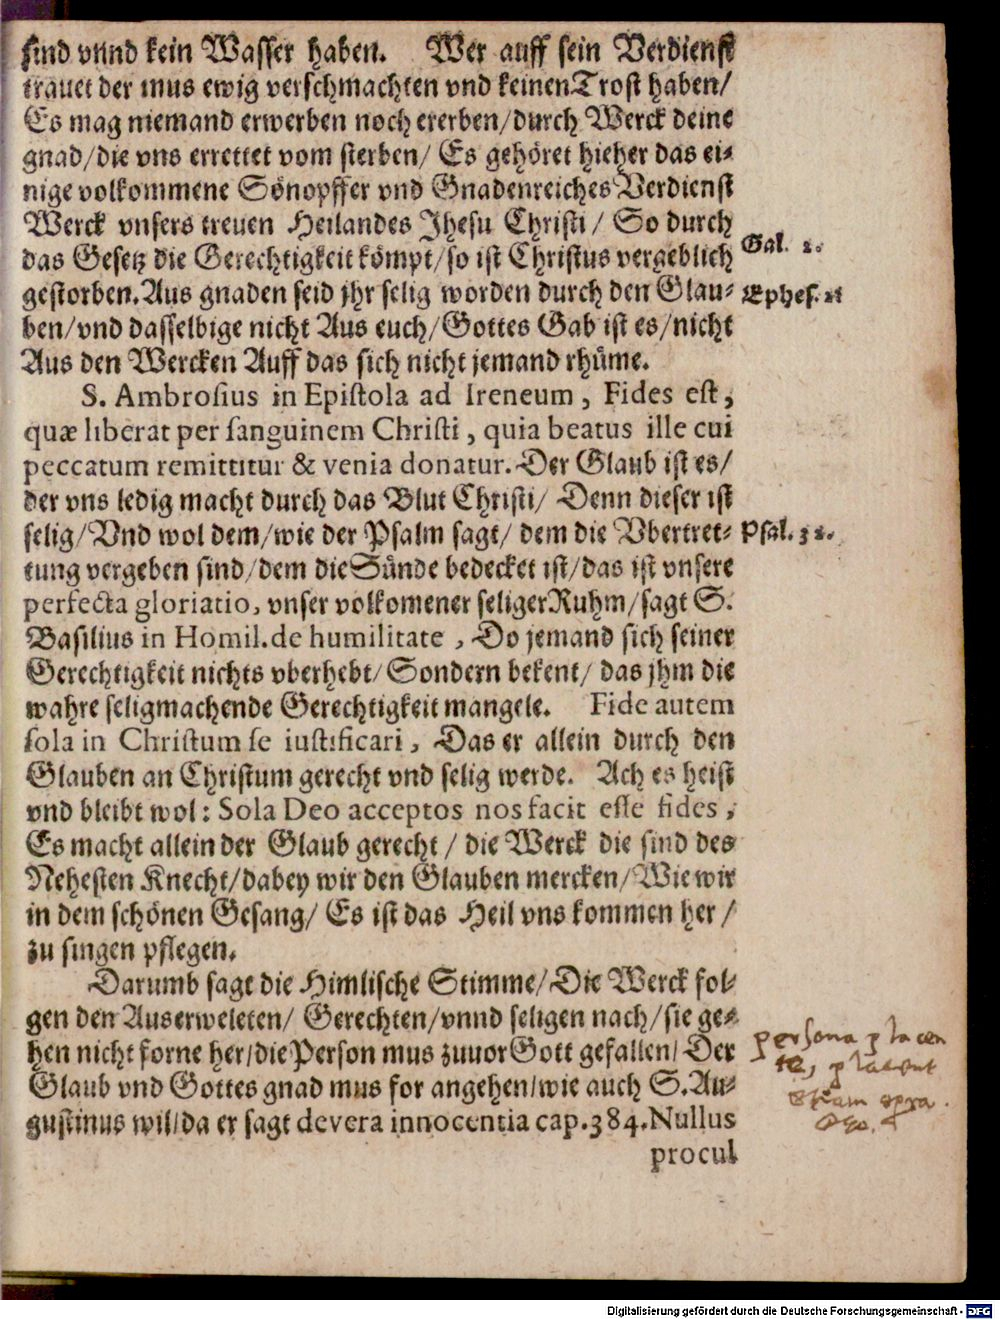 sind vnnd kein Wasser haben. Wer auff sein Verdienst
trauet der mus ewig verschmachten vnd keinen Trost haben/
Es mag niemand erwerben noch ererben/durch Werck deine
gnad/die vns errettet vom sterben/ Es gehöret hieher das ei-
nige volkommene Sönopffer vnd Gnadenreiches Verdienst
Werck vnsers treuen Heilandes Jhesu Christi / So durch
das Gesetz die Gerechtigkeit kömpt/so ist Christus vergeblich
Gal. 2.
gestorben. Aus gnaden seid jhr selig worden durch den Glau-
Ephes. 2.
ben/vnd dasselbige nicht Aus euch/Gottes Gab ist es/nicht
Aus den Wercken Auff das sich nicht jemand rhüme.
S. Ambrosius in Epistola ad Ireneum, Fides est,
quæ liberat per sanguinem Christi, quia beatus ille cui
peccatum remittitur & venia donatur. Der Glaub ist es/
der vns ledig macht durch das Blut Christi/ Denn dieser ist
selig/Vnd wol dem/wie der Psalm sagt/ dem die Vbertret-
Psal. 32.
tung vergeben sind/dem die Sünde bedecket ist/das ist vnsere
perfecta gloriatio, vnser volkomener seliger Ruhm/sagt S.
Basilius in Homil. de humilitate, Do jemand sich seiner
Gerechtigkeit nichts vberhebt/Sondern bekent/ das jhm die
wahre seligmachende Gerechtigkeit mangele. Fide autem
sola in Christum se iustificari, Das er allein durch den
Glauben an Christum gerecht vnd selig werde. Ach es heist
vnd bleibt wol: Sola Deo acceptos nos facit esse fides,
Es macht allein der Glaub gerecht / die Werck die sind des
Nehesten Knecht/dabey wir den Glauben mercken/Wie wir
in dem schönen Gesang/ Es ist das Heil vns kommen her /
zu singen pflegen.
Darumb sagt die Himlische Stimme/Die Werck fol-
gen den Auserweleten/ Gerechten/vnnd seligen nach/sie ge-
hen nicht forne her/die Person mus zuuor Gott gefallen/ Der
Glaub vnd Gottes gnad mus for angehen/wie auch S. Au-
gustinus wil/da er sagt de vera innocentia cap. 384. Nullus
procul
persona placen
te, placent
etiam opera
Digitalisierung gefördert durch die Deutsche Forschungsgemeinschaft - DFG